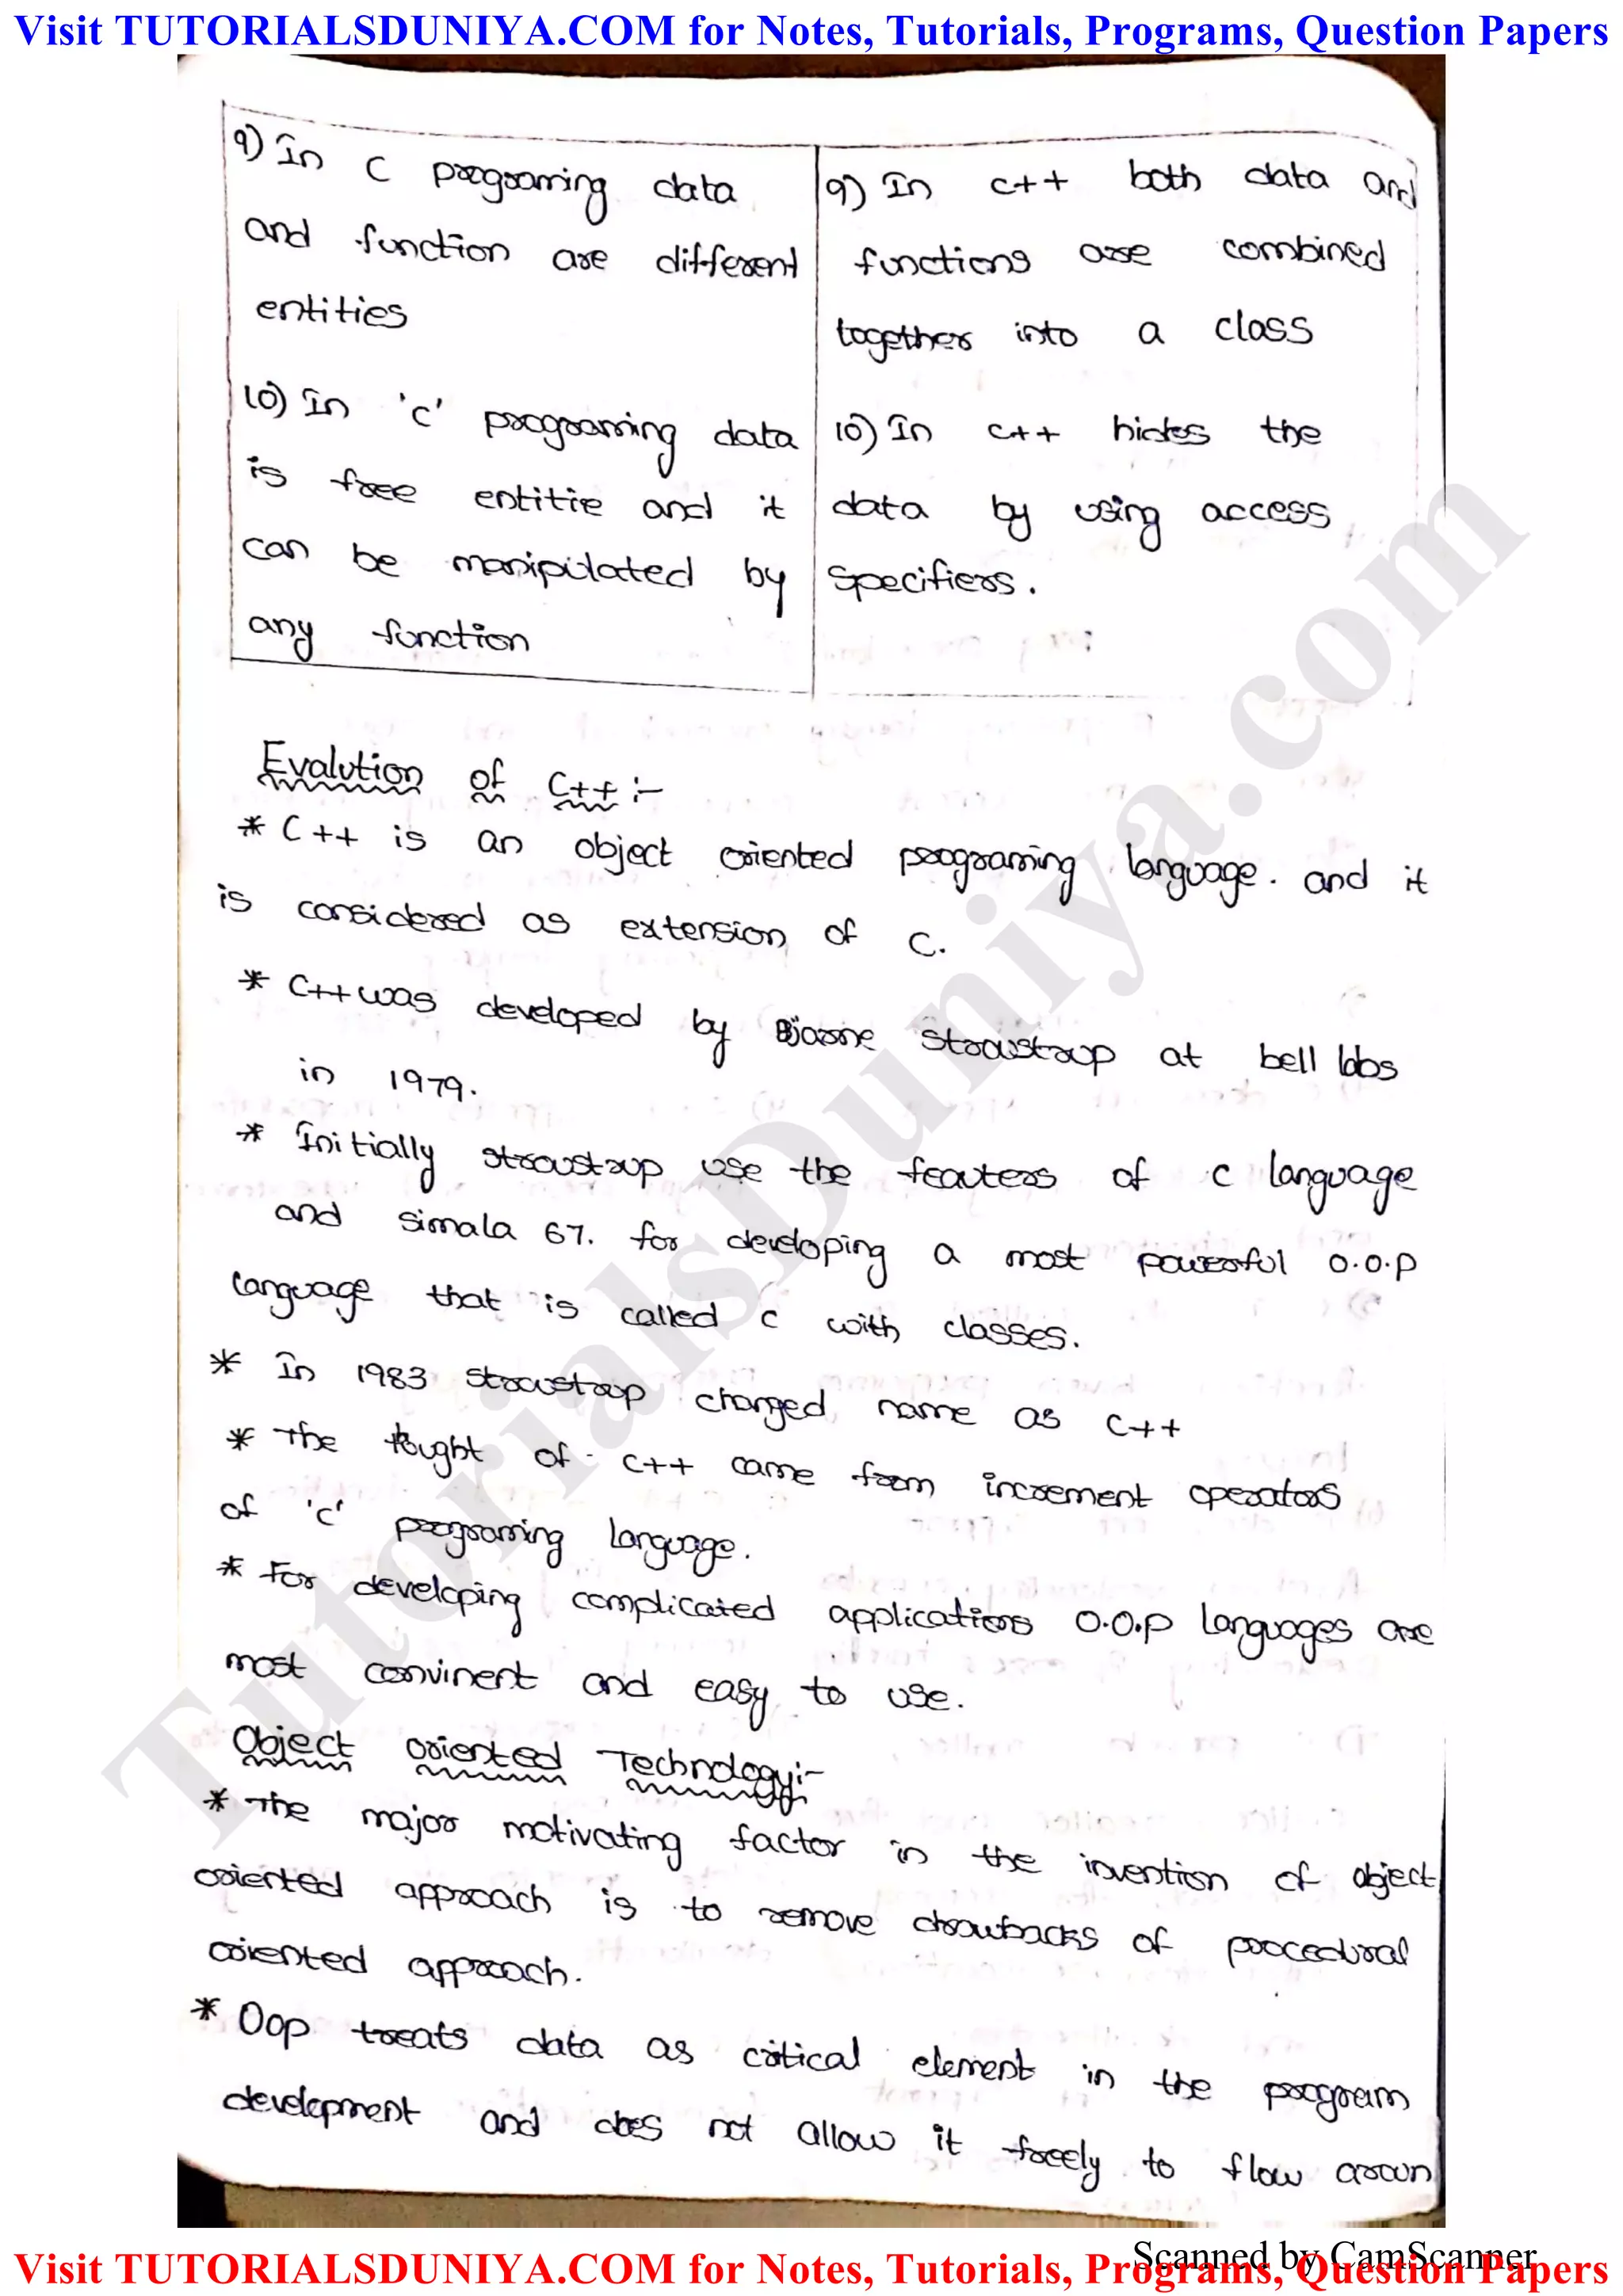 Visit TUTORIALSDUNIYA.COM for Notes, Tutorials, Programs, Question Papers
9) In C programing data
and function are different
entities
10) In 'C' programing data
is free entitie and it
can be manipulated by
any function
9) In C++ both data and
functions are combined
together into a class
10) In C++ hides the
data by using access
specifiers.
Evalution of C++ :-
* C++ is an object oriented programing language. and it
is considered as extension of C.
* C++ was developed by Bjarne Stroustrup at bell labs
in 1979.
* Initially stroustrup use the feauters of C language
and Simala 67. for developing a most powerful O.O.P
language that is called C with classes.
* In 1983 Stroustrup changed name as C++
* The tought of C++ came from increment operators
of 'C' programing language.
* For developing complicated applications O.O.P languages are
most convinent and easy to use.
Object oriented Technology:-
* The major motivating factor in the invention of object
oriented approach is to remove drawbacks of procedural
oriented approach.
* Oop treats data as critical element in the program
development and does not allow it freely to flow aroun
TutorialsDuniya.com
Scanned by CamScanner
Visit TUTORIALSDUNIYA.COM for Notes, Tutorials, Programs, Question Papers